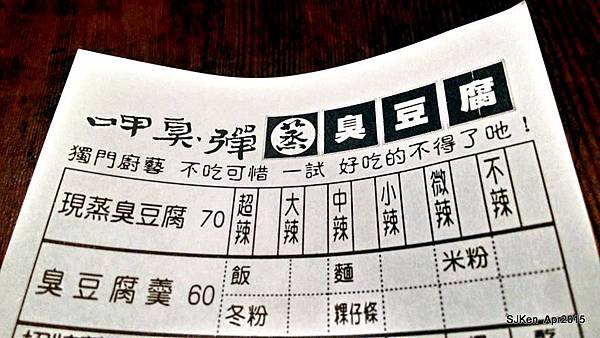 呷臭‧彈 蒸臭豆腐
獨門廚藝 不吃可惜 一試 好吃的不得了吔！
現蒸臭豆腐 70 超辣 大辣 中辣 小辣 微辣 不辣
臭豆腐羹 60 飯 麵 米粉
冬粉 粿仔條
SJKen_Apr2015